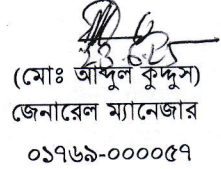 (মোঃ আব্দুল কুদ্দুস)
জেনারেল ম্যানেজার
০১৭৬৯-০০০০৫৭